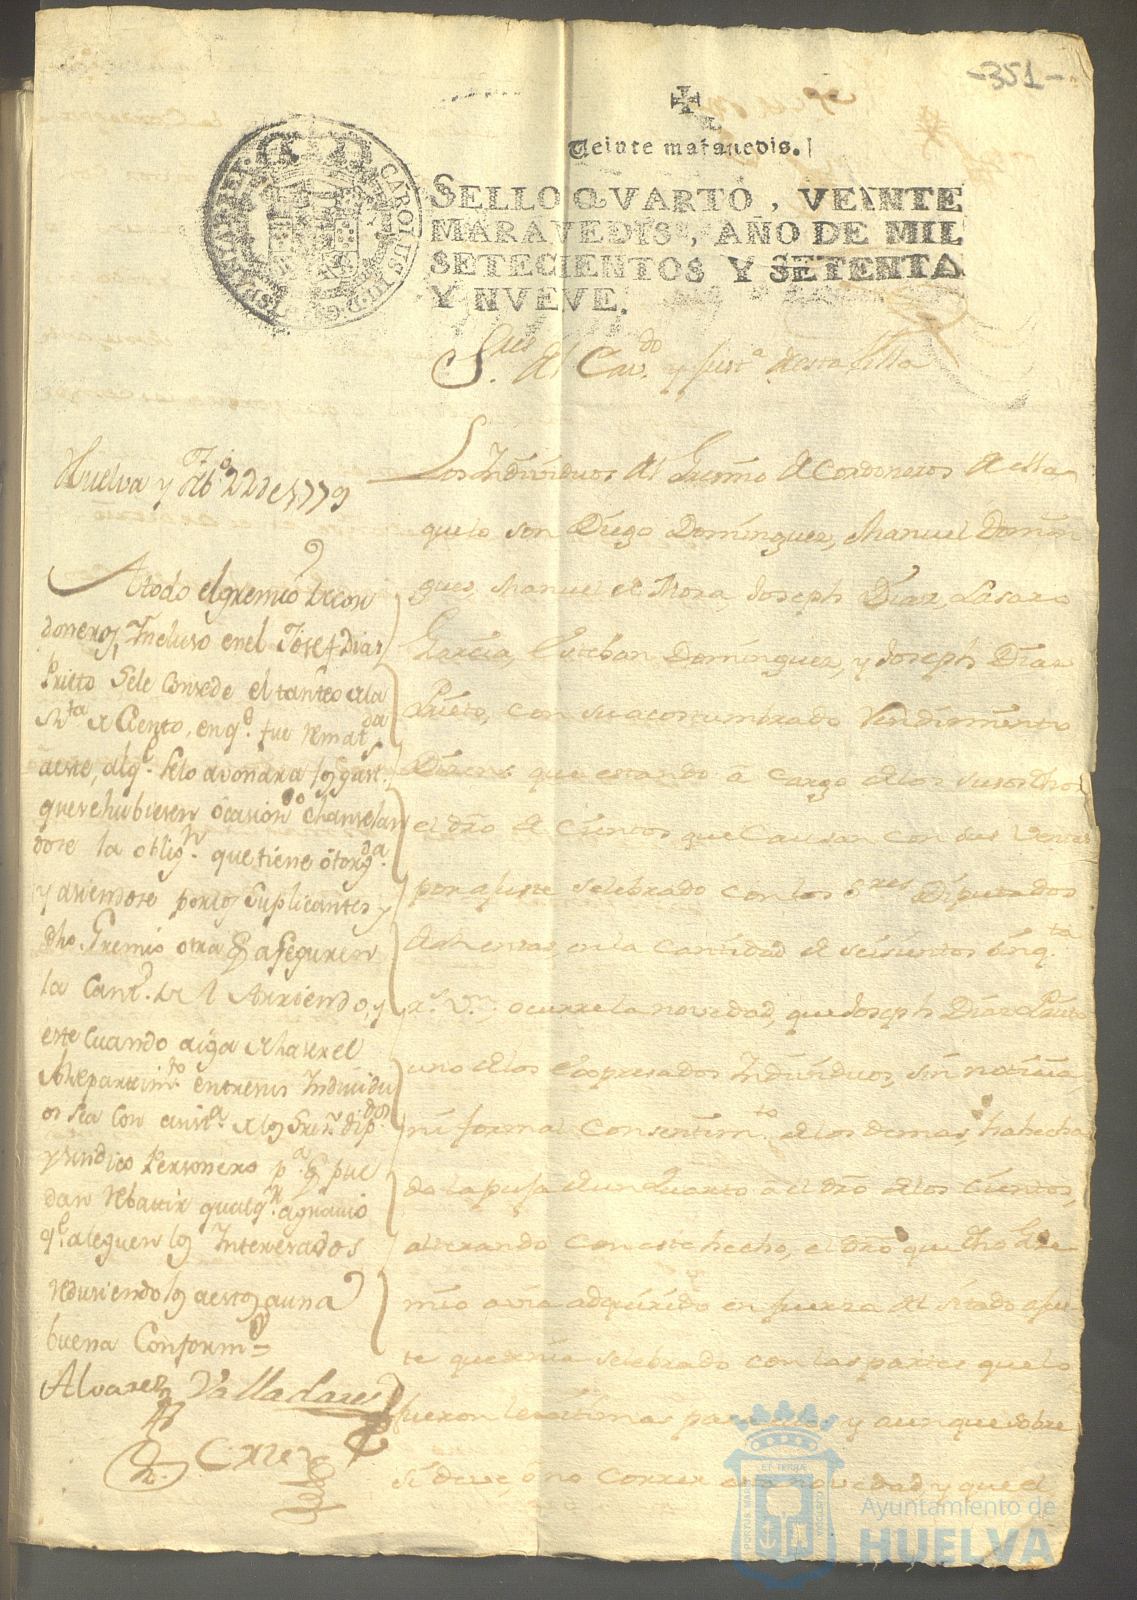 -351-
Veinte maravedis.
SELLO QVARTO, VEINTE
MARAVEDIS, AÑO DE MIL
SETECIENTOS Y SETENTA
Y NVEVE.
CAROLUS III D G
HISPANIAR REX
S.res del Cav.do y Just.a desta Villa
Huelva y Feb.o 22 de 1779
A todo el gremio de cor
doneros, Incluso en el Josef Dias
Prieto Sele Consede el tanteo a la
R.ta de Ciento, en q.e fue Remat.da
a este, al q.e selo avonara los gast.s
que se hubiesen ocasion.do chanselan
dose la oblig.n que tiene otorg.da
y asiendose por los Suplicantes y
dho Gremio otra q aseguren
la Cant.d del Arriendo, y
este cuando aiga de haser el
Repartim.to entre sus Individu
os sea con asist.a de los Sres dip.dos
y sindico Personero p.a q pue
dan Rebatir qualq.r agravio
q.e aleguen los Interesados
Redusiendolos a estos a una
buena Conform.d
Alvarez Valladares
Los Individuos del Gremio de Cordoneros de ella
que lo son Diego Dominguez, Manuel Domin
gues, Manuel de Mora, Joseph Diaz, Lasaro
Garcia, Esteban Dominguez, y Joseph Diaz
Prieto, con su acostumbrado Rendimiento
Disen: que estando a cargo de los susodhos
el dro de Cientos que Causan con sus Ventas
por ajuste selebrado con los S.res Diputados
de Rentas, en la cantidad de seisientos sinq.ta
r.s v.n ocurre la novedad, que Joseph Diaz Prieto
uno de los Expresados Individuos, sin noticia
ni formal Consentim.to de los demas, ha hecha
do la puja de un Quarto a el dro de los Cientos,
alterando con este hecho, el dro que dho Gre
mio avia adquirido en fuerza del sitado ajus
te que tenia selebrado con las partes que lo
fueron lexitimas para ello, y aunque sobre
si deve, o no correr esta novedad y que el
Ayuntamiento de
HUELVA